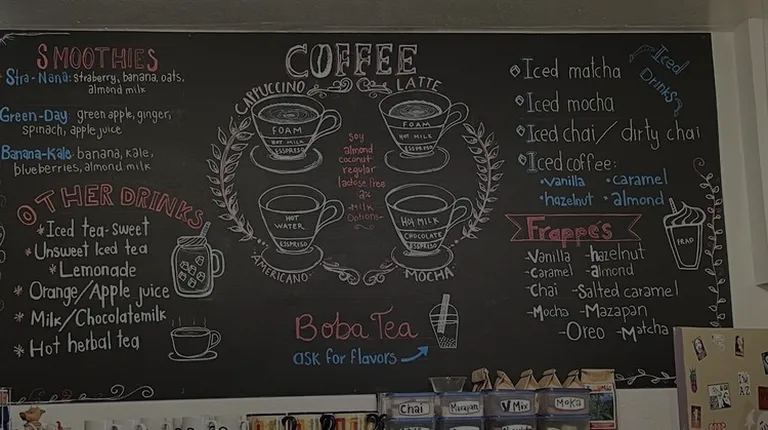 SMOOTHIES
Stra-Nana: straberry, banana, oats,
almond milk
Green-Day: green apple, ginger,
spinach, apple juice
Banana-Kale: banana, kale,
blueberries, almond milk
OTHER DRINKS
*Iced tea-sweet
*Unsweet Iced tea
*Lemonade
*Orange/Apple juice
*Milk/Chocolatemilk
*Hot herbal tea
COFFEE
CAPPUCCINO
FOAM
HOT MILK
ESSPRESO
LATTE
FOAM
HOT MILK
ESSPRESO
soy
almond
coconut
regular
lactose free
2%
-Milk
Options-
HOT
WATER
ESPRESSO
AMERICANO
HOT-MILK
CHOCOLATE
ESPRESSO
MOCHA
Boba Tea
ask for flavors
Iced Drinks
Iced matcha
Iced mocha
Iced chai/dirty chai
Iced coffee:
•vanilla •caramel
•hazelnut •almond
Frappés
-Vanilla -hazelnut
-Caramel -almond
-Chai -Salted caramel
-Mocha -Mazapan
-Oreo -Matcha
FRAP
Chai
Mazapan
V Mix
Moka